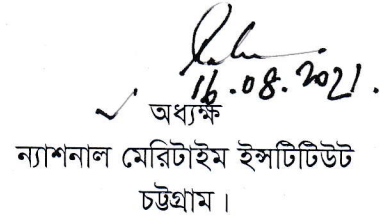 16.08.2021.
অধ্যক্ষ
ন্যাশনাল মেরিটাইম ইন্সটিটিউট
চট্টগ্রাম।